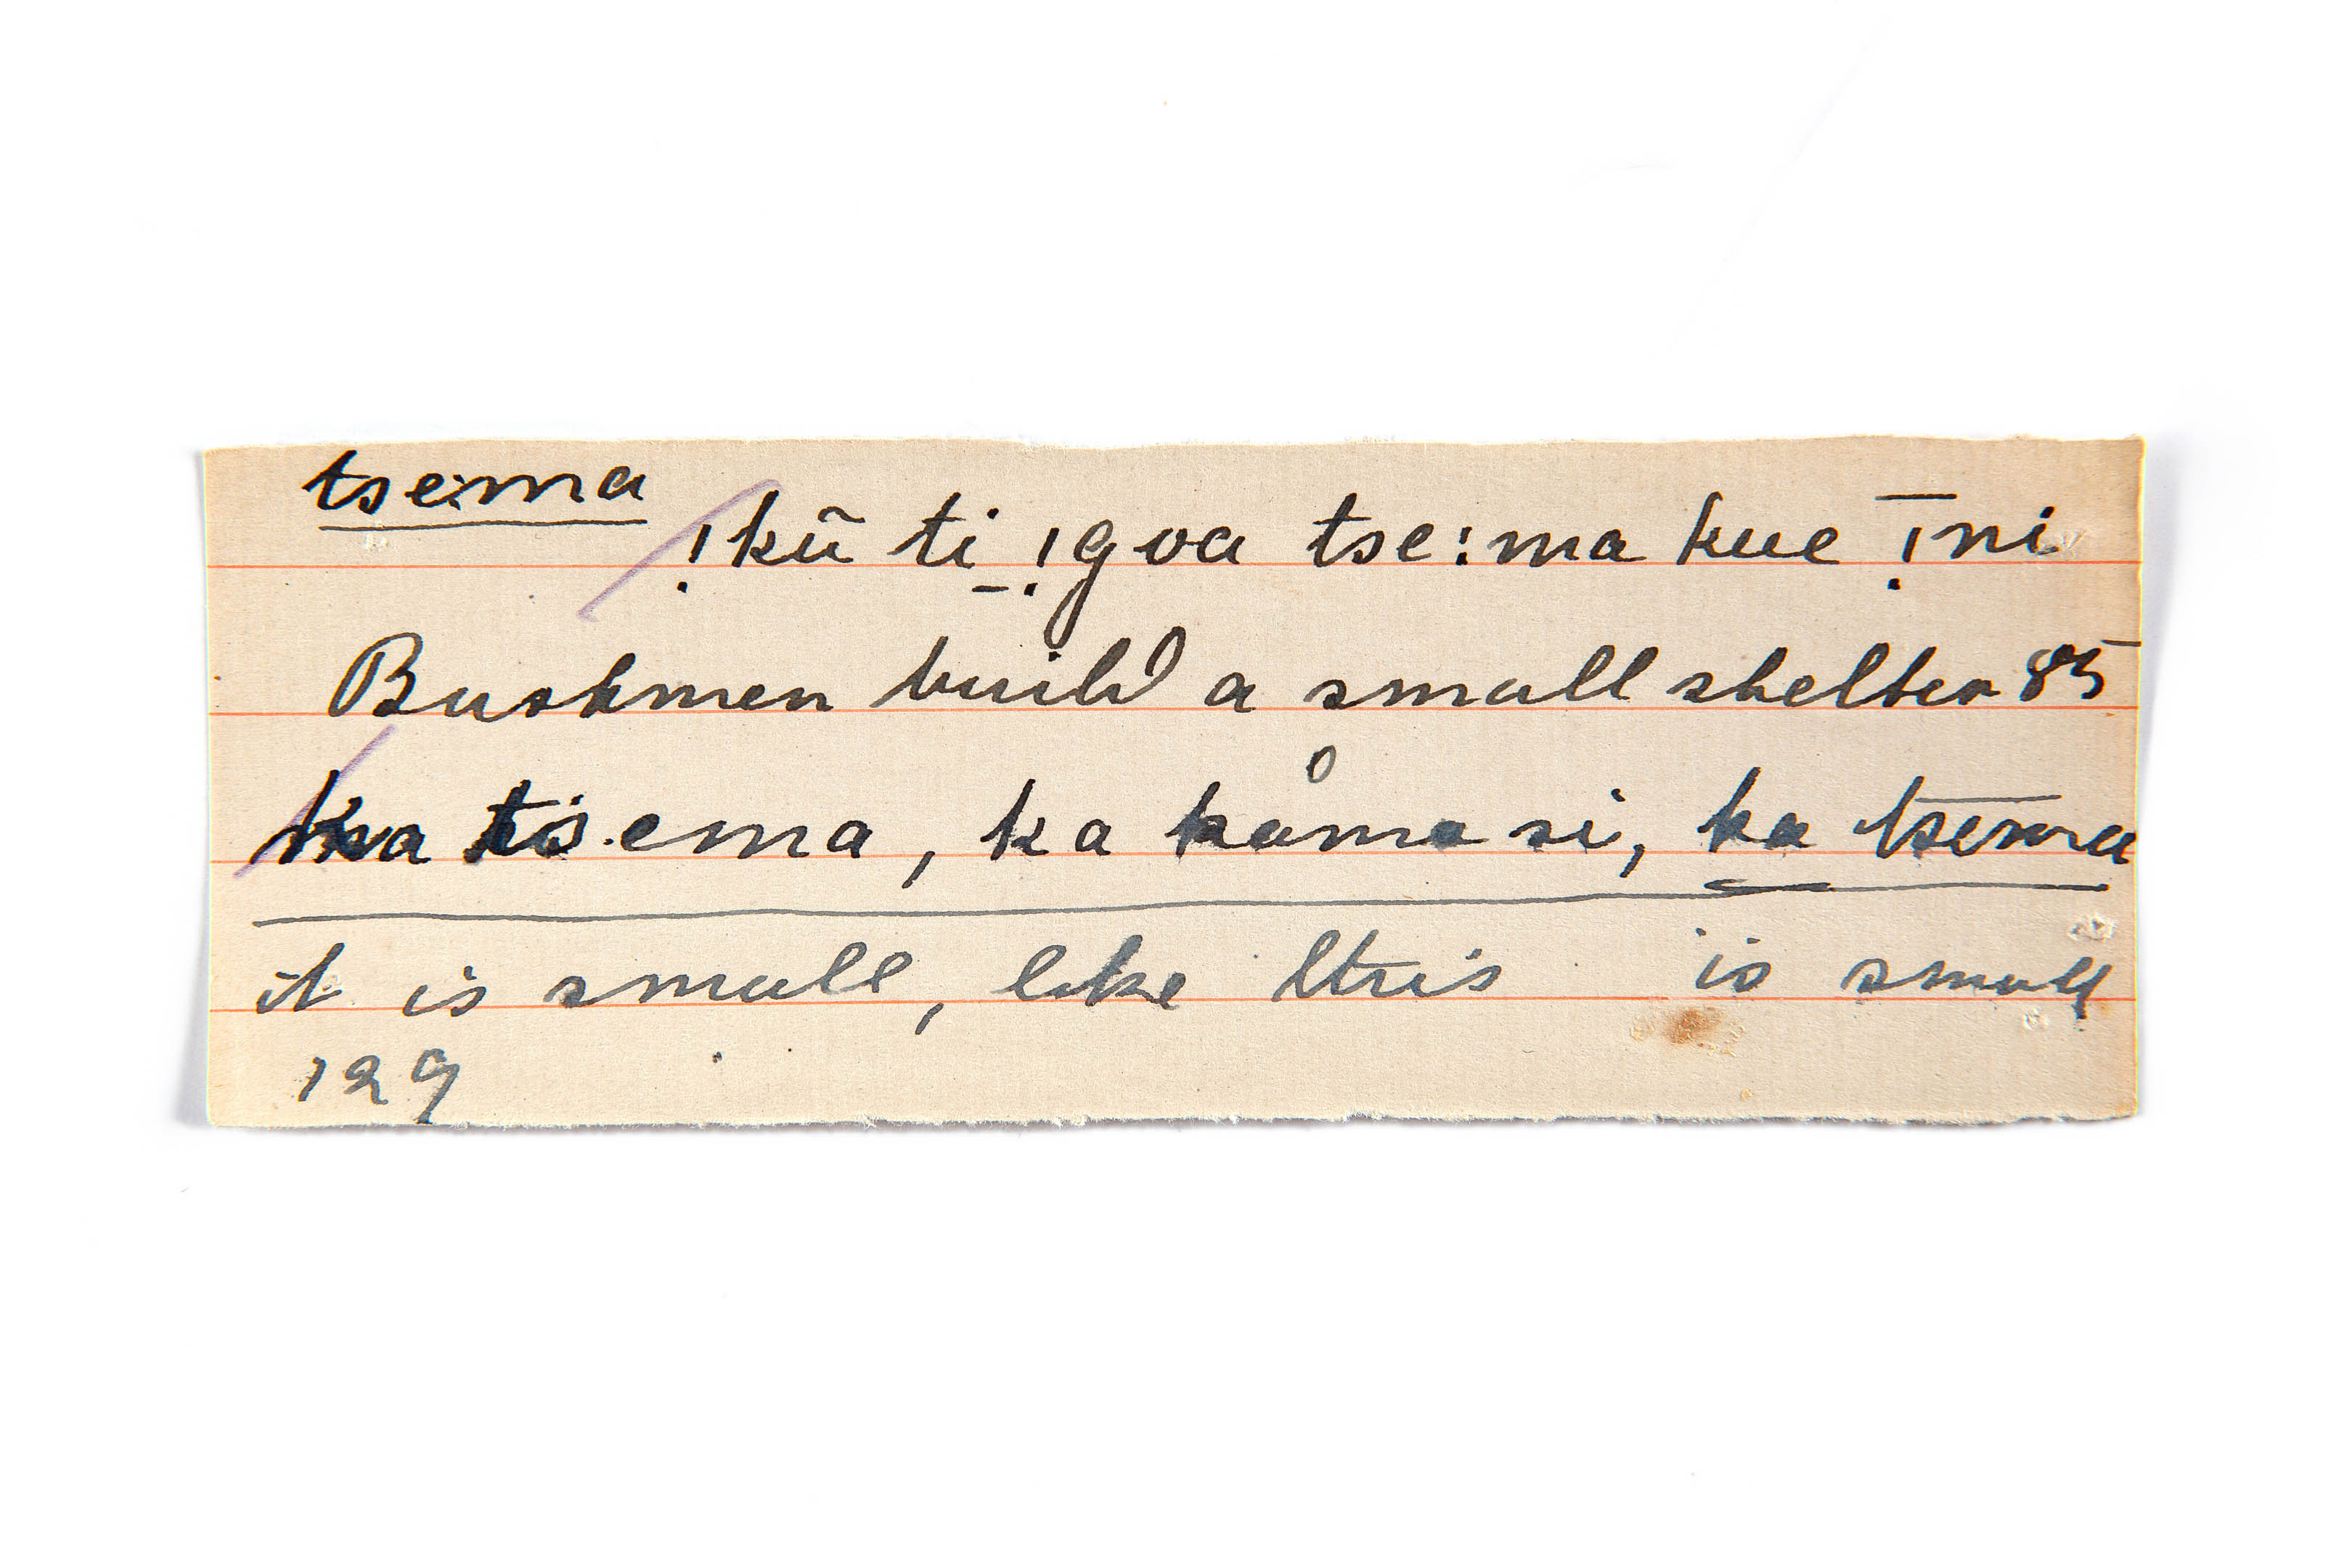 tse:ma
!kũ ti _!goa tse:ma kue ‾!ni
Bushmen build a small shelter 85
ka tsema, ka kåma si, ka tsema
it is small, like this is small
129